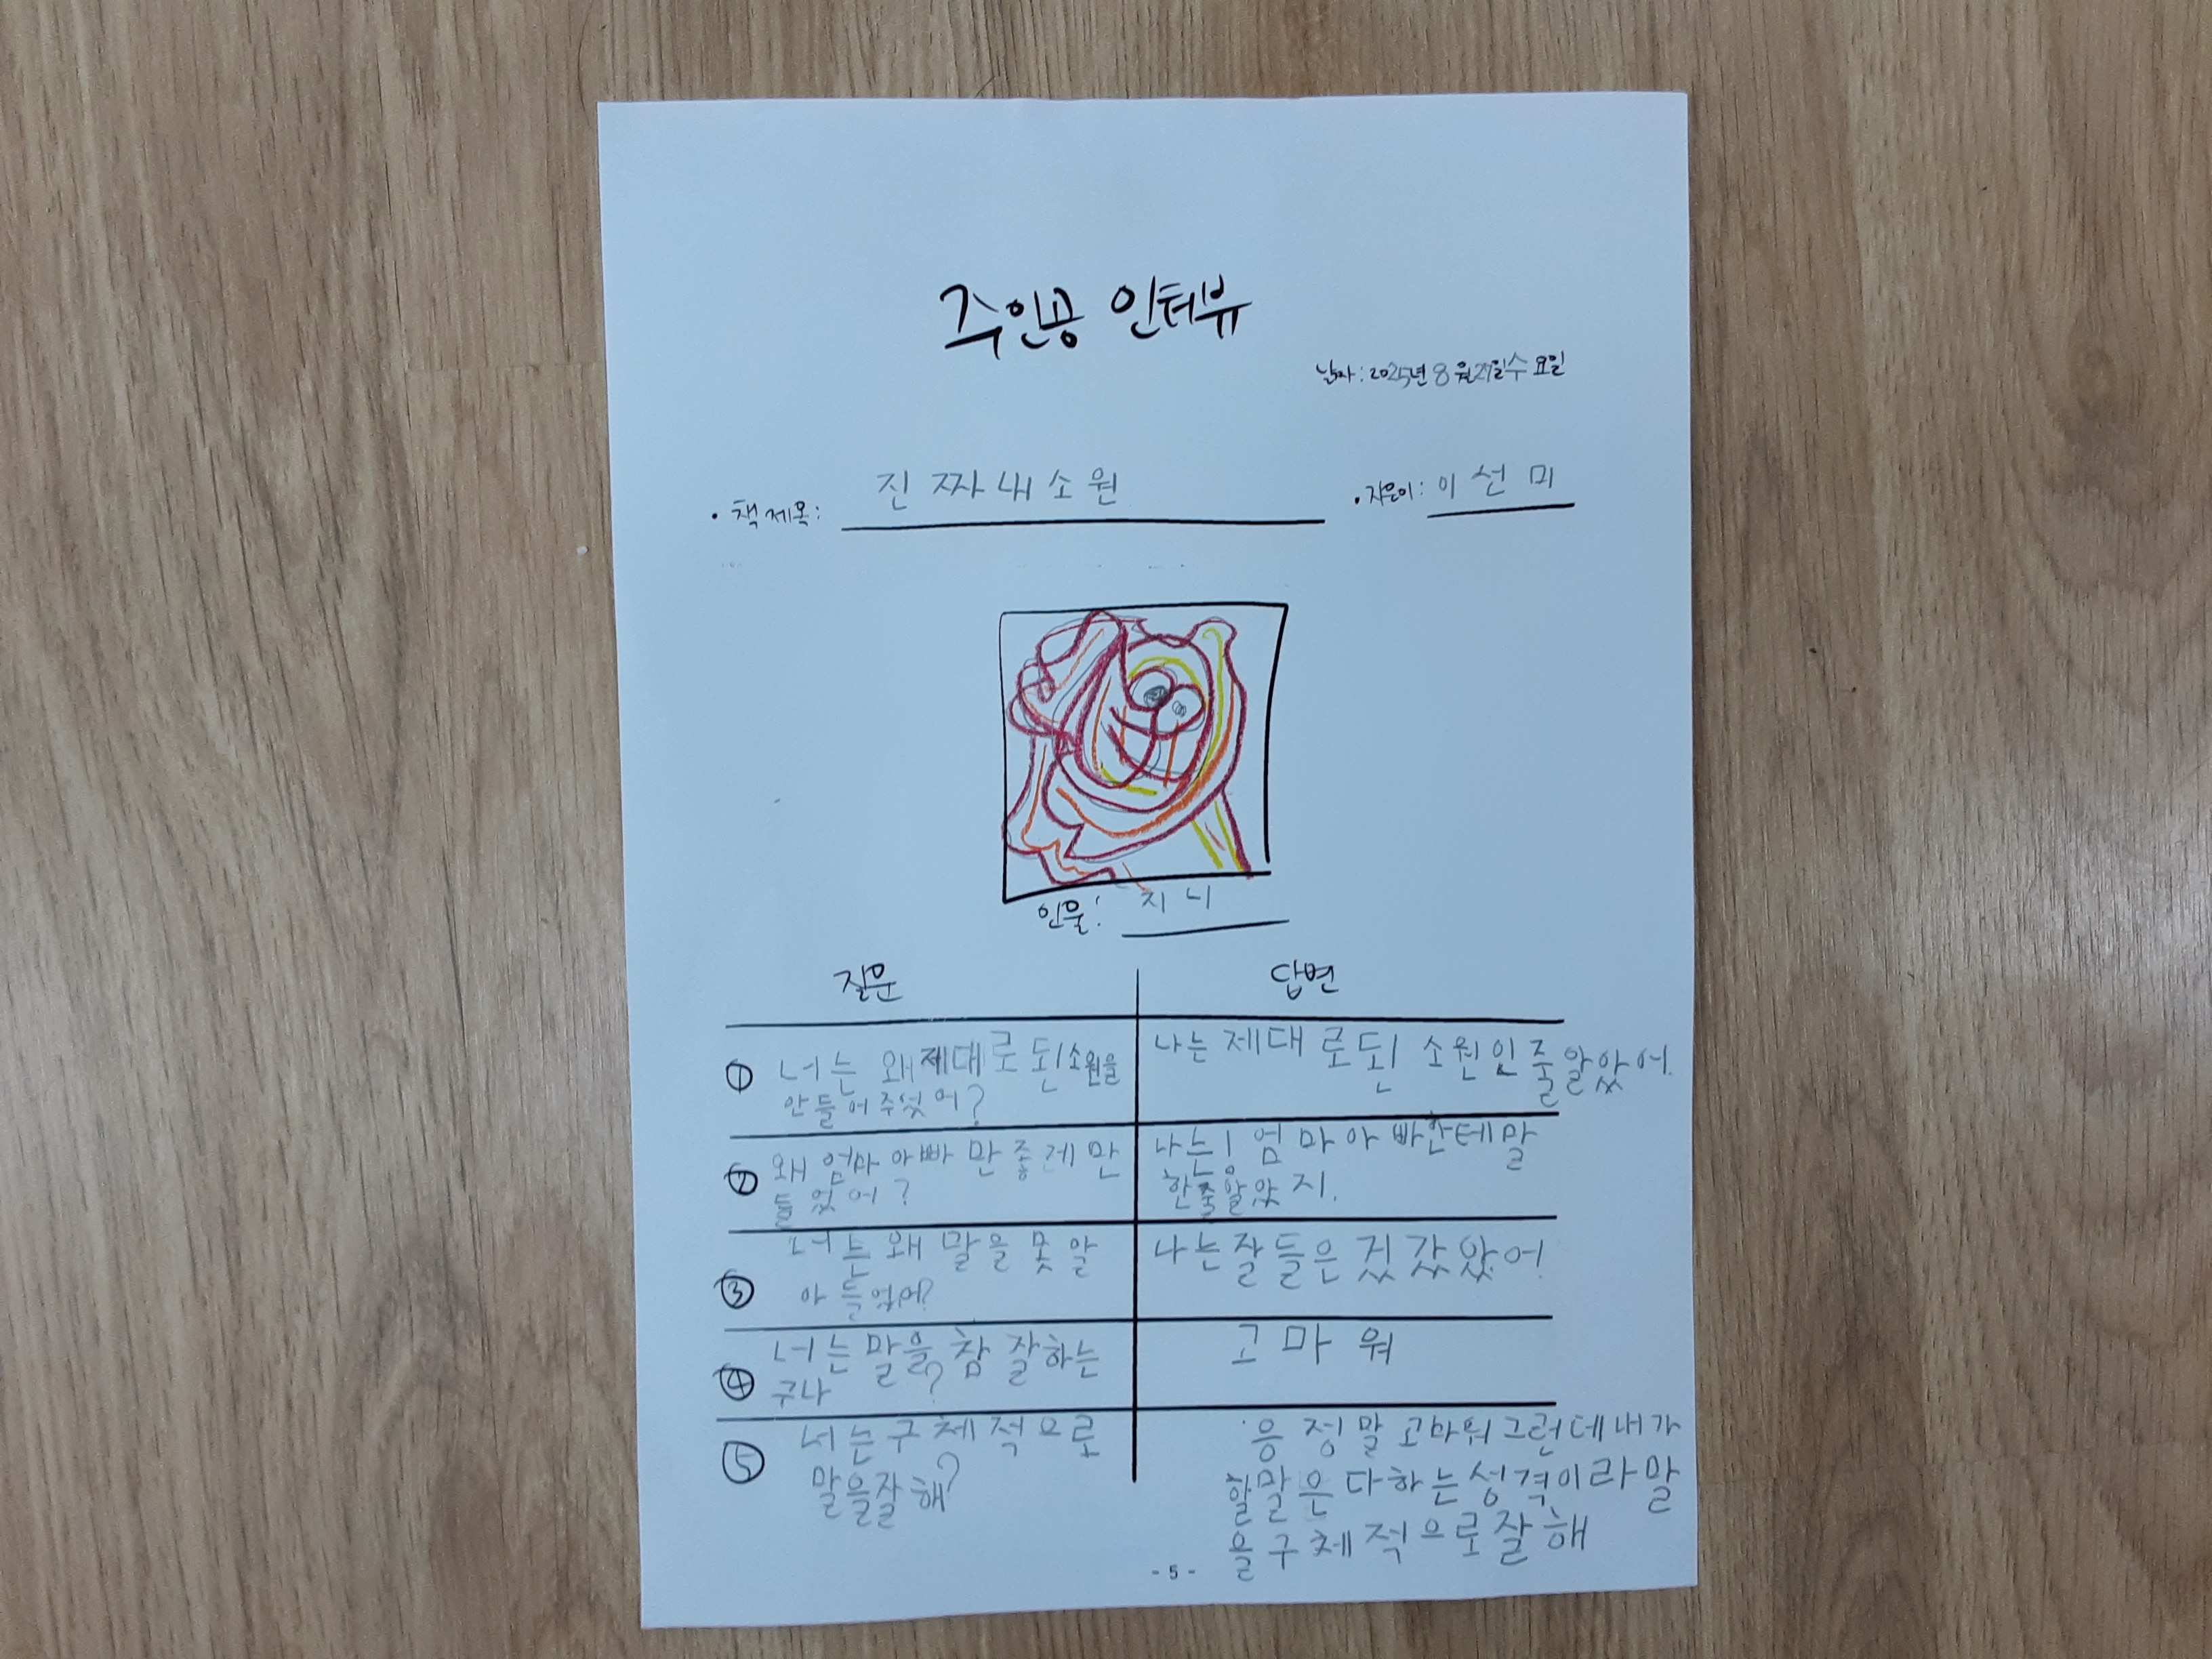 주인공 인터뷰
날짜: 2025년 8월 27일 수요일
• 책 제목: 진짜 내 소원
• 지은이: 이선미
인물: 지니
질문 답변
① 너는 왜 제대로 된 소원을
안 들어 주웠어?
나는 제대로 된 소원인 줄 알았어.
② 왜 엄마 아빠만 좋게 만
들었어?
나는 엄마 아빠한테 말
한 줄 알았지.
③ 너는 왜 말을 못 알
아 들었어?
나는 잘 들은 겄 갔았어
④ 너는 말을 참 잘하는
구나?
고마워
⑤ 너는 구체적으로
말을 잘해?
응 정말 고마워 그런데 내가
할 말은 다 하는 성격이라 말
을 구체적으로 잘해
- 5 -